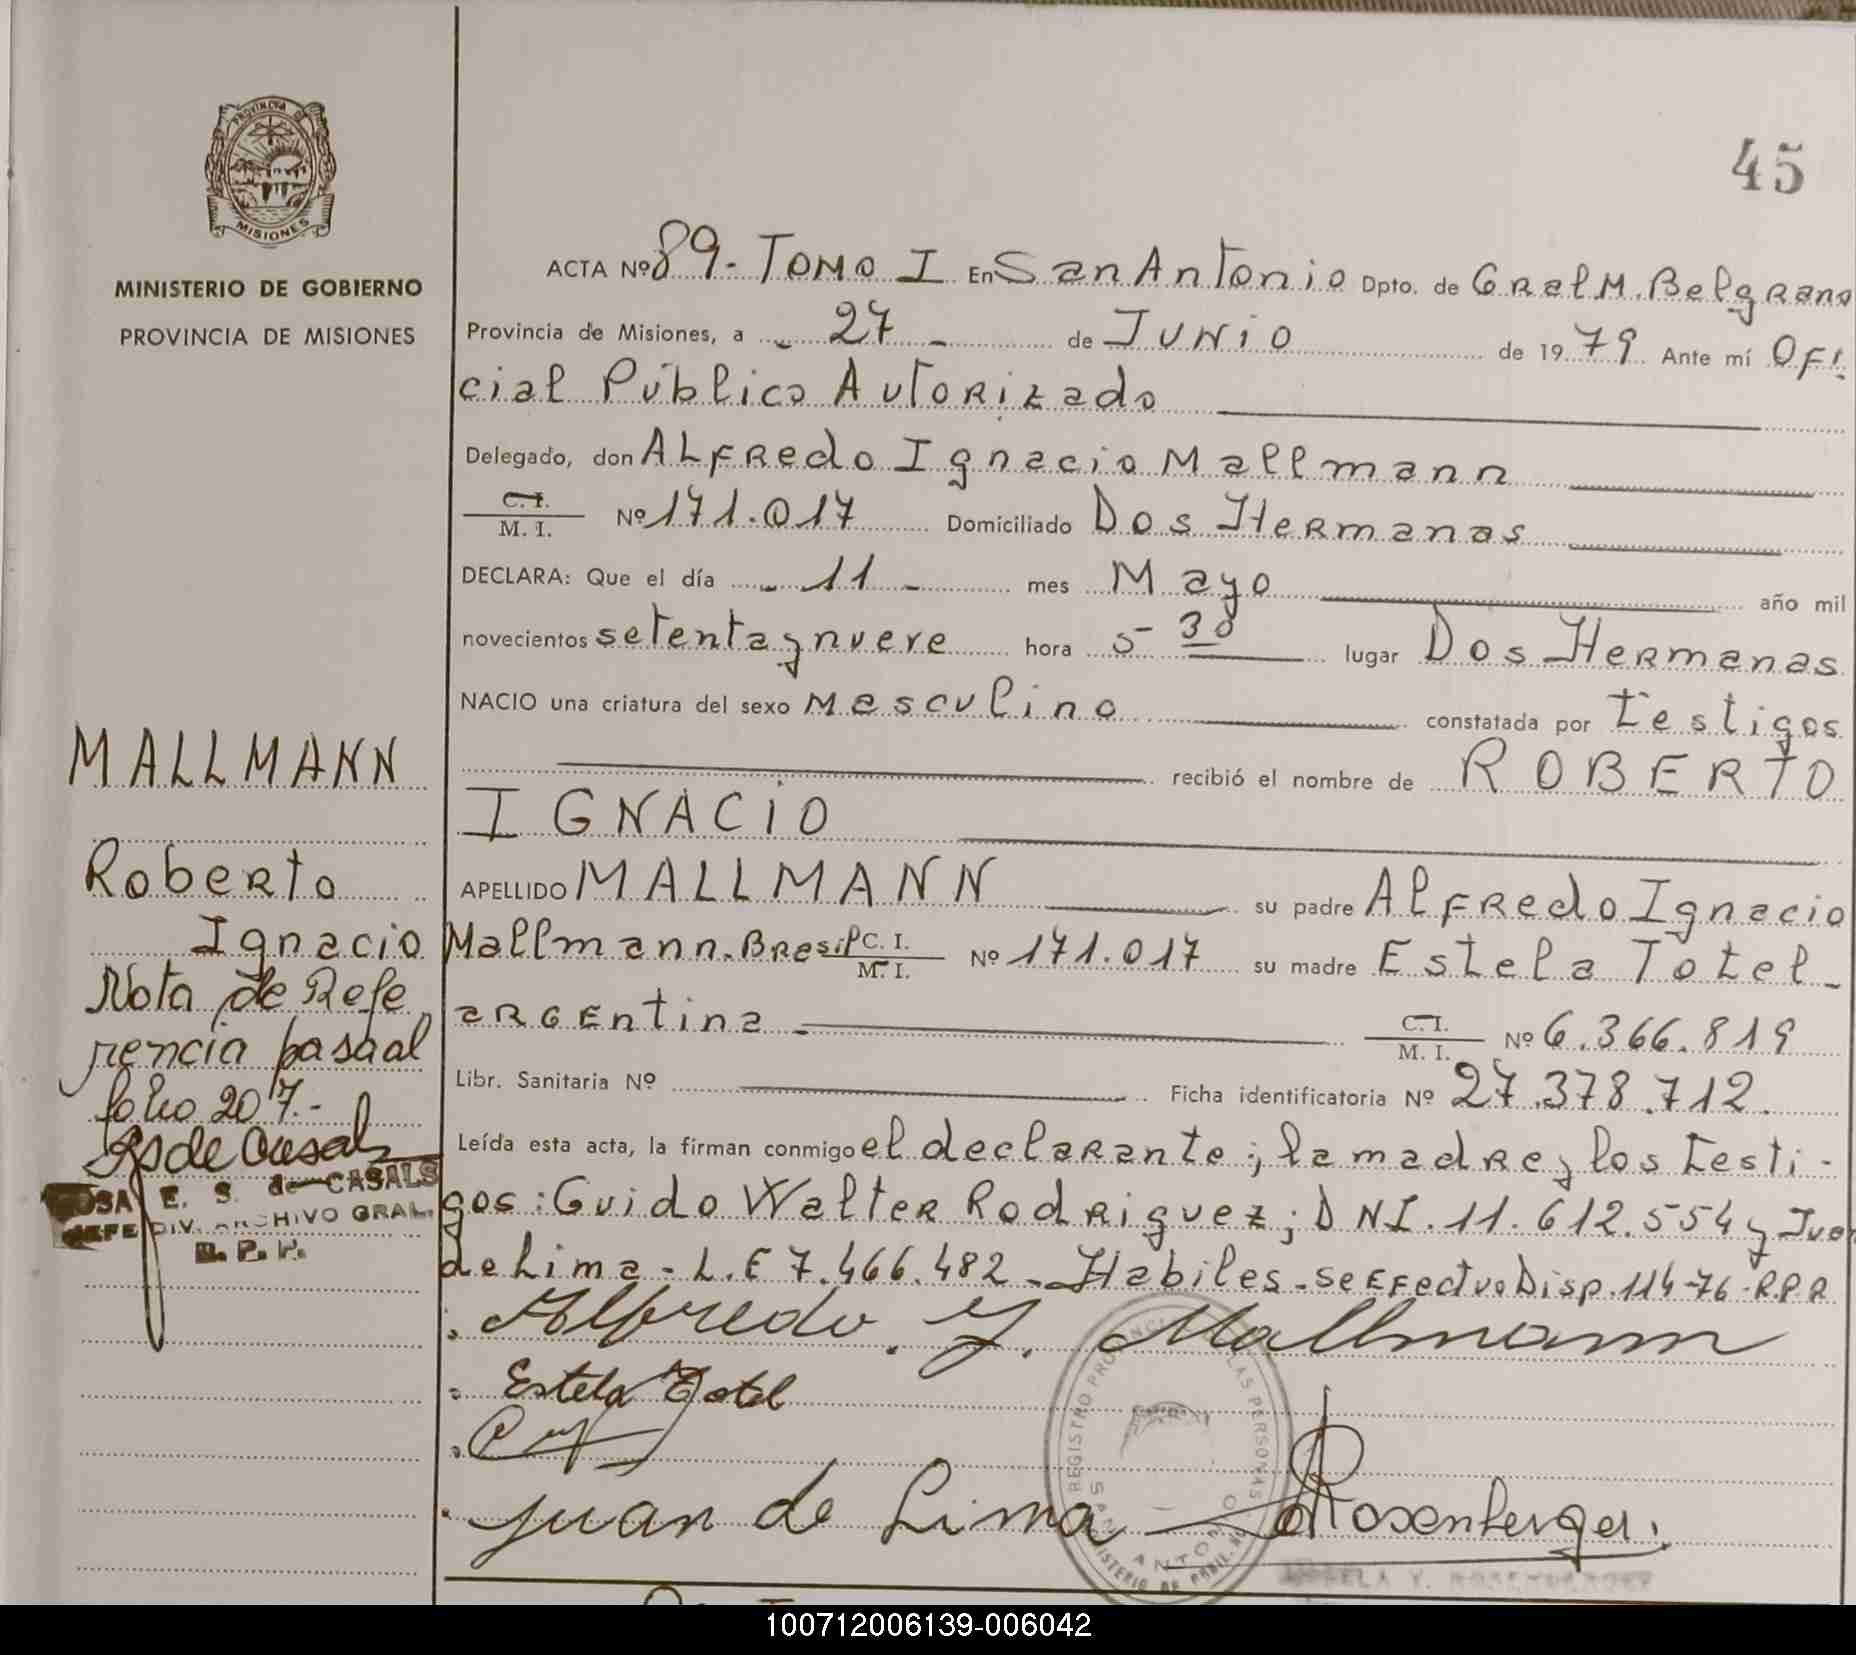 45
PROVINCIA DE
MISIONES
MINISTERIO DE GOBIERNO
PROVINCIA DE MISIONES
ACTA Nº 89.- TOMO I En San Antonio Dpto. de Gral M. Belgrano
Provincia de Misiones, a - 27 - de JUNIO de 1979 Ante mí Ofi
cial Público Autorizado
Delegado, don ALFREdo Ignacio Mallmann
C. I.
M. I. Nº 171.017 Domiciliado Dos Hermanas
DECLARA: Que el día - 11 - mes Mayo año mil
novecientos setenta y nueve hora 5 30 lugar Dos Hermanas
NACIO una criatura del sexo Masculino constatada por testigos
recibió el nombre de ROBERTO
IGNACIO
APELLIDO MALLMANN su padre Alfredo Ignacio
Mallmann. Brasil C. I.
M. I. Nº 171.017 su madre Estela Totel-
argentina - C. I.
M. I. Nº 6.366.819
Libr. Sanitaria Nº Ficha identificatoria Nº 27.378.712.
Leída esta acta, la firman conmigo el declarante; la madre y los testi-
gos: Guido Walter Rodriguez; DNI. 11.612.554 y Juan
de Lima - L.E 7.466.482 - Habiles - se Efectuo Disp. 114-76-R.P.P.
Alfredo. I. Mallmann
Estela Totel
Juan de Lima
Rosenberger.
MALLMANN
Roberto
Ignacio
Nota de Refe
rencia pasa al
folio 207.-
RS de Casals
ROSA E. S. de CASALS
JEFE DIV. ARCHIVO GRAL.
R. P. P.
REGISTRO PROVINCIAL DE LAS PERSONAS
SAN ANTONIO
100712006139-006042